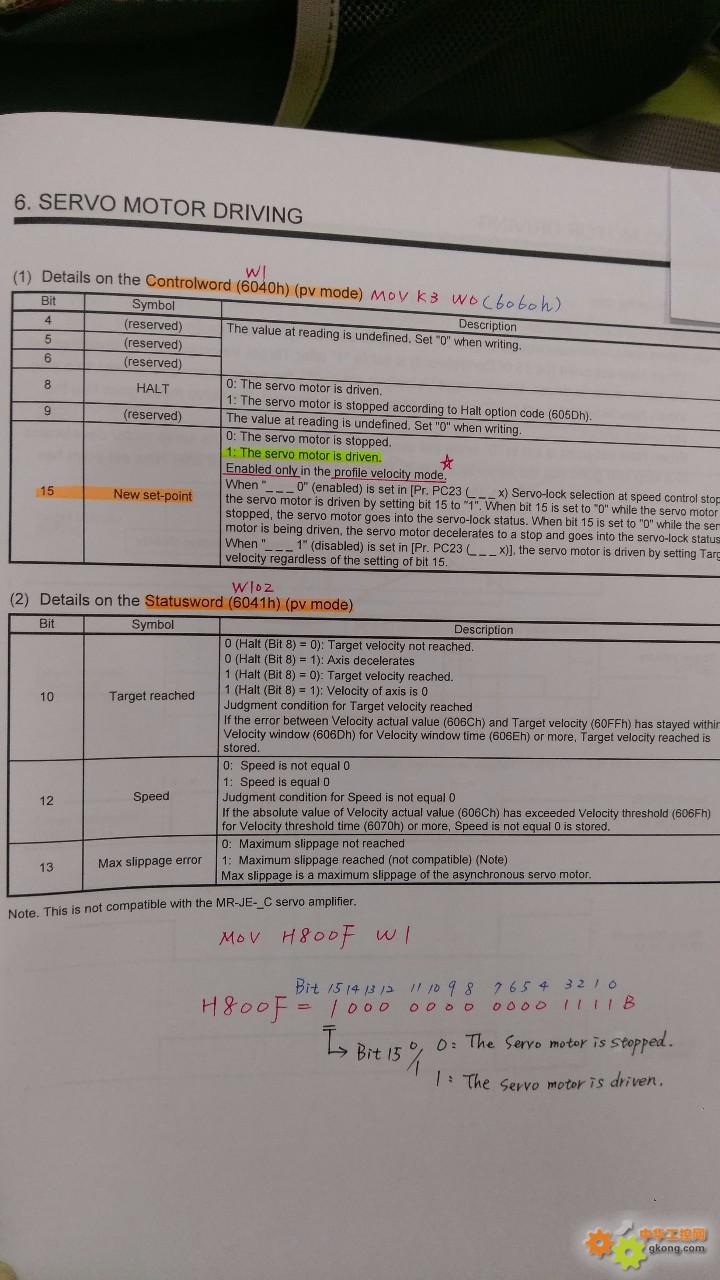 6. SERVO MOTOR DRIVING
W1
(1) Details on the Controlword (6040h) (pv mode) MOV K3 W0 (6060h)
Bit Symbol Description
4 (reserved) The value at reading is undefined. Set "0" when writing.
5 (reserved)
6 (reserved)
8 HALT 0: The servo motor is driven.
1: The servo motor is stopped according to Halt option code (605Dh).
9 (reserved) The value at reading is undefined. Set "0" when writing.
15 New set-point 0: The servo motor is stopped.
1: The servo motor is driven.
Enabled only in the profile velocity mode. ☆
When "_ _ _ 0" (enabled) is set in [Pr. PC23 (_ _ _ x) Servo-lock selection at speed control stop
the servo motor is driven by setting bit 15 to "1". When bit 15 is set to "0" while the servo motor
stopped, the servo motor goes into the servo-lock status. When bit 15 is set to "0" while the ser
motor is being driven, the servo motor decelerates to a stop and goes into the servo-lock status
When "_ _ _ 1" (disabled) is set in [Pr. PC23 (_ _ _ x)], the servo motor is driven by setting Targ
velocity regardless of the setting of bit 15.
W102
(2) Details on the Statusword (6041h) (pv mode)
Bit Symbol Description
10 Target reached 0 (Halt (Bit 8) = 0): Target velocity not reached.
0 (Halt (Bit 8) = 1): Axis decelerates
1 (Halt (Bit 8) = 0): Target velocity reached.
1 (Halt (Bit 8) = 1): Velocity of axis is 0
Judgment condition for Target velocity reached
If the error between Velocity actual value (606Ch) and Target velocity (60FFh) has stayed within
Velocity window (606Dh) for Velocity window time (606Eh) or more, Target velocity reached is
stored.
12 Speed 0: Speed is not equal 0
1: Speed is equal 0
Judgment condition for Speed is not equal 0
If the absolute value of Velocity actual value (606Ch) has exceeded Velocity threshold (606Fh)
for Velocity threshold time (6070h) or more, Speed is not equal 0 is stored.
13 Max slippage error 0: Maximum slippage not reached
1: Maximum slippage reached (not compatible) (Note)
Max slippage is a maximum slippage of the asynchronous servo motor.
Note. This is not compatible with the MR-JE-_C servo amplifier.
MOV H800F W1
Bit 15 14 13 12 11 10 9 8 7 6 5 4 3 2 1 0
H800F = 1 0 0 0 0 0 0 0 0 0 0 0 1 1 1 1 B
→ Bit 15 0/1 0: The servo motor is stopped.
1: The servo motor is driven.
中华工控网
gkong.com